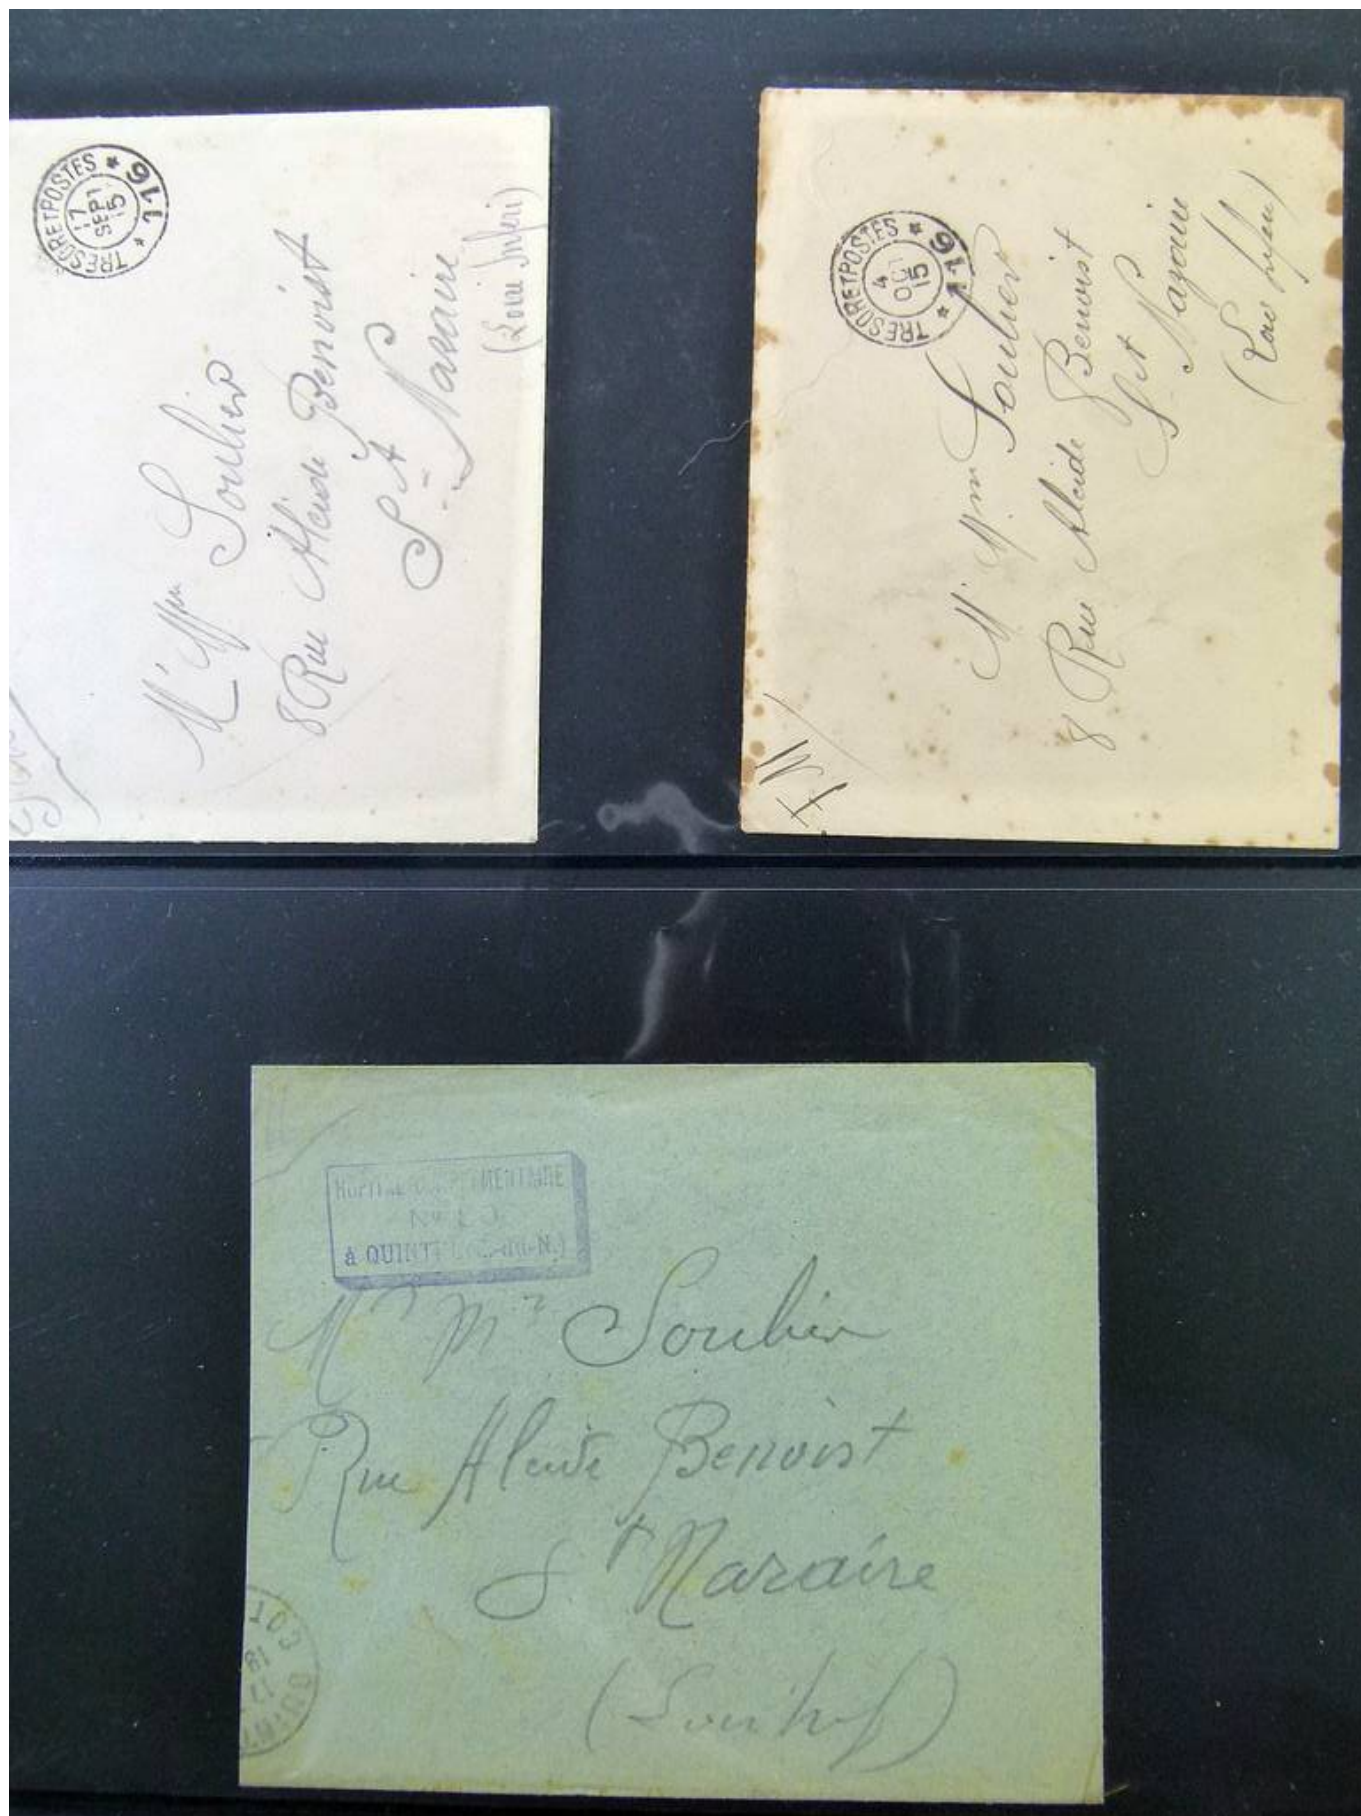 TRESOR ET POSTES
* 116 *
17
SEPT
15
Mr Mme Soulier
8 Rue Alcide Benoist
St Nazaire
(Loire Inferi)
TRESOR ET POSTES
* 116 *
4
OCT
15
FM
Mr Mme Soulier
8 Rue Alcide Benoist
St Nazaire
(Loire Infre)
HOPITAL COMPLEMENTAIRE
No
à QUINTIN (C.-du-N.)
Mr Me Soulier
Rue Alcide Benoist
St Nazaire
QUINT
COT